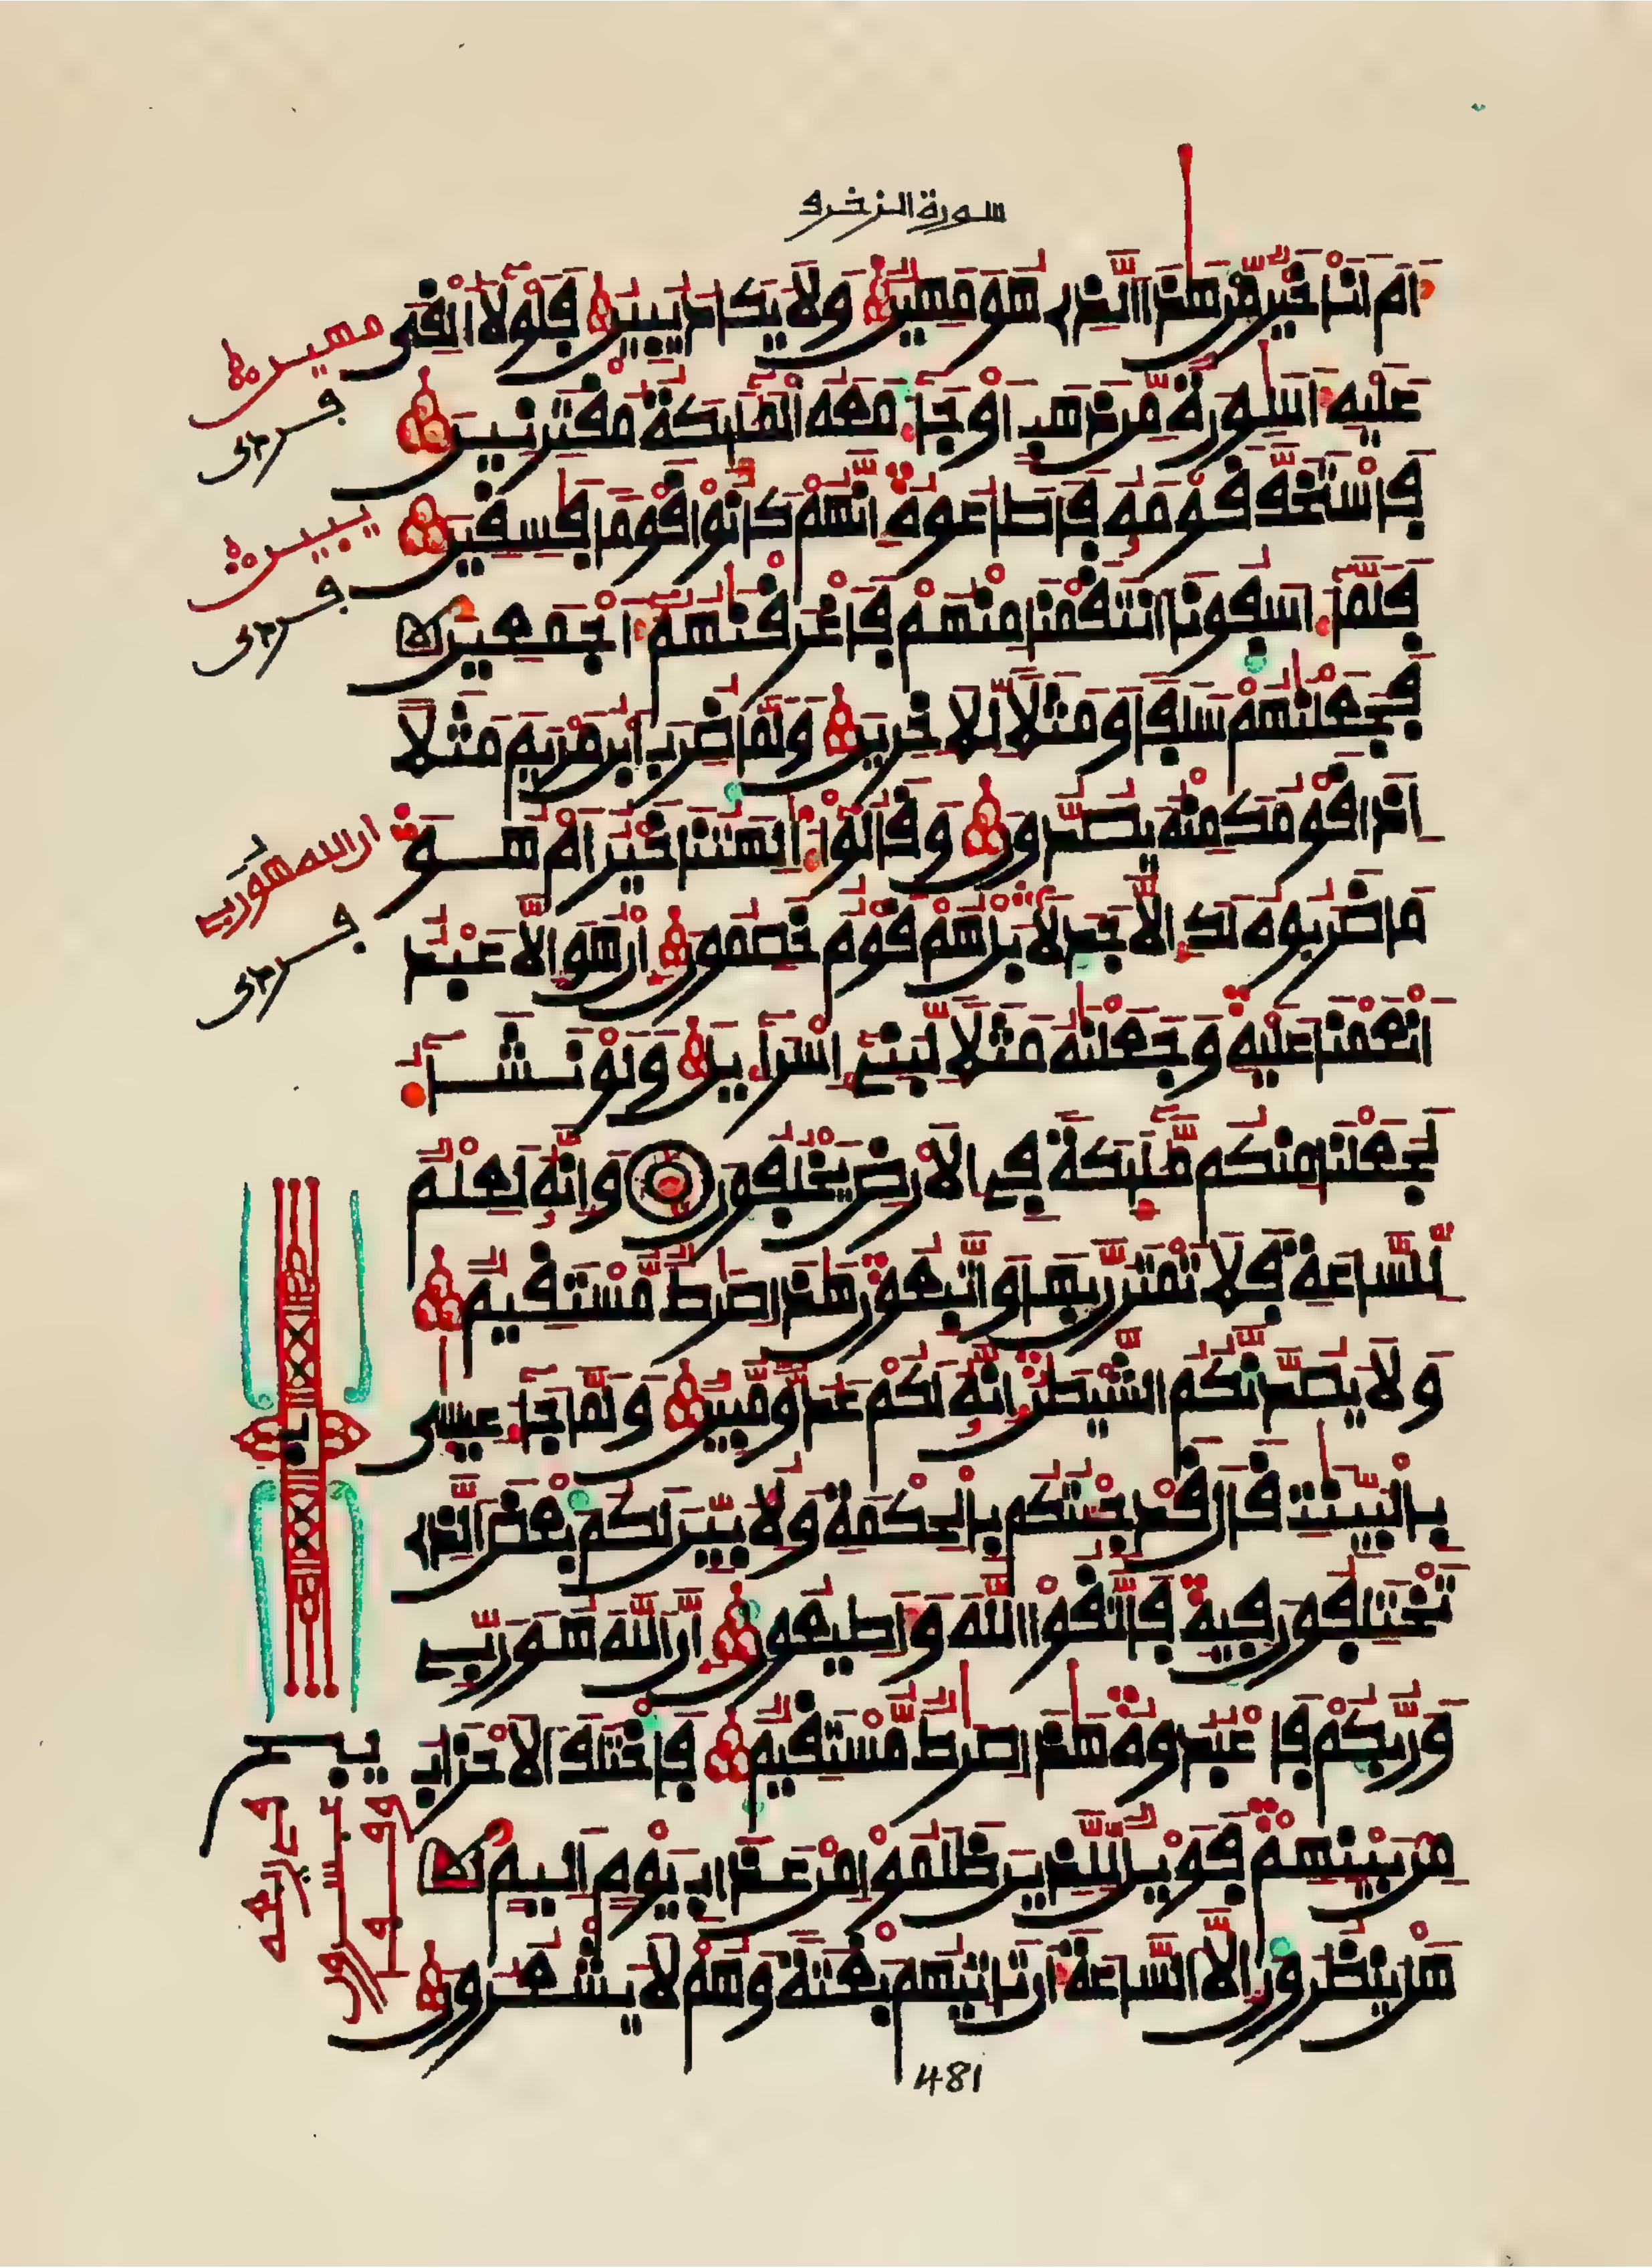 سورة الزخرف
اَمَ اَنَا خَيْرٌ مِّنْ هَٰذَا اَ۬لذِے هُوَ مَهِينٌ وَلَا يَكَادُ يُبِينُ فَلَوْلَا أُلْقِيَ
عَلَيْهِ أَسَٰوِرَةٌ مِّن ذَهَبٍ اَوْ جَآءَ مَعَهُ اُ۬لْمَلَٰٓئِكَةُ مُقْتَرِنِينَ
فَاسْتَخَفَّ قَوْمَهُۥ فَأَطَاعُوهُ إِنَّهُمْ كَانُواْ قَوْماً فَٰسِقِينَ
فَلَمَّآ ءَاسَفُونَا اَ۪نتَقَمْنَا مِنْهُمْ فَأَغْرَقْنَٰهُمُۥٓ أَجْمَعِينَ
فَجَعَلْنَٰهُمْ سَلَفاً وَمَثَلًا لِّلَاخِرِينَ وَلَمَّا ضُرِبَ اَ۪بْنُ مَرْيَمَ مَثَلًا
اِذَا قَوْمُكَ مِنْهُ يَصُدُّونَ وَقَالُوٓاْ ءَأَٰلِهَتُنَا خَيْرٌ اَمْ هُوَ
مَا ضَرَبُوهُ لَكَ إِلَّا جَدَلًا بَلْ هُمْ قَوْمٌ خَصِمُونَ إِنْ هُوَ إِلَّا عَبْدٌ
اَنْعَمْنَا عَلَيْهِ وَجَعَلْنَٰهُ مَثَلًا لِّبَنِےٓ إِسْرَآءِيلَ وَلَوْ نَشَآءُ
لَجَعَلْنَا مِنكُم مَّلَٰٓئِكَةً فِے اِ۬لَارْضِ يَخْلُفُونَ وَإِنَّهُۥ لَعِلْمٌ
لِّلسَّاعَةِ فَلَا تَمْتَرُنَّ بِهَا وَاتَّبِعُونِ هَٰذَا صِرَٰطٌ مُّسْتَقِيمٌ
وَلَا يَصُدَّنَّكُمُ اُ۬لشَّيْطَٰنُ إِنَّهُۥ لَكُمْ عَدُوٌّ مُّبِينٌ وَلَمَّا جَآءَ عِيسَىٰ
بِالْبَيِّنَٰتِ قَالَ قَدْ جِئْتُكُم بِالْحِكْمَةِ وَلِأُبَيِّنَ لَكُم بَعْضَ اَ۬لذِے
تَخْتَلِفُونَ فِيهِ فَاتَّقُواْ اُ۬للَّهَ وَأَطِيعُونِ إِنَّ اَ۬للَّهَ هُوَ رَبِّے
وَرَبُّكُمْ فَاعْبُدُوهُ هَٰذَا صِرَٰطٌ مُّسْتَقِيمٌ فَاخْتَلَفَ اَ۬لَاحْزَابُ
مِنۢ بَيْنِهِمْ فَوَيْلٌ لِّلذِينَ ظَلَمُواْ مِنْ عَذَابِ يَوْمٍ اَلِيمٍ
هَلْ يَنظُرُونَ إِلَّا اَ۬لسَّاعَةَ أَن تَاتِيَهُم بَغْتَةً وَهُمْ لَا يَشْعُرُونَ
مهين
فرءى
يبين
فرءى
ان الله هو رب
فرءى
481